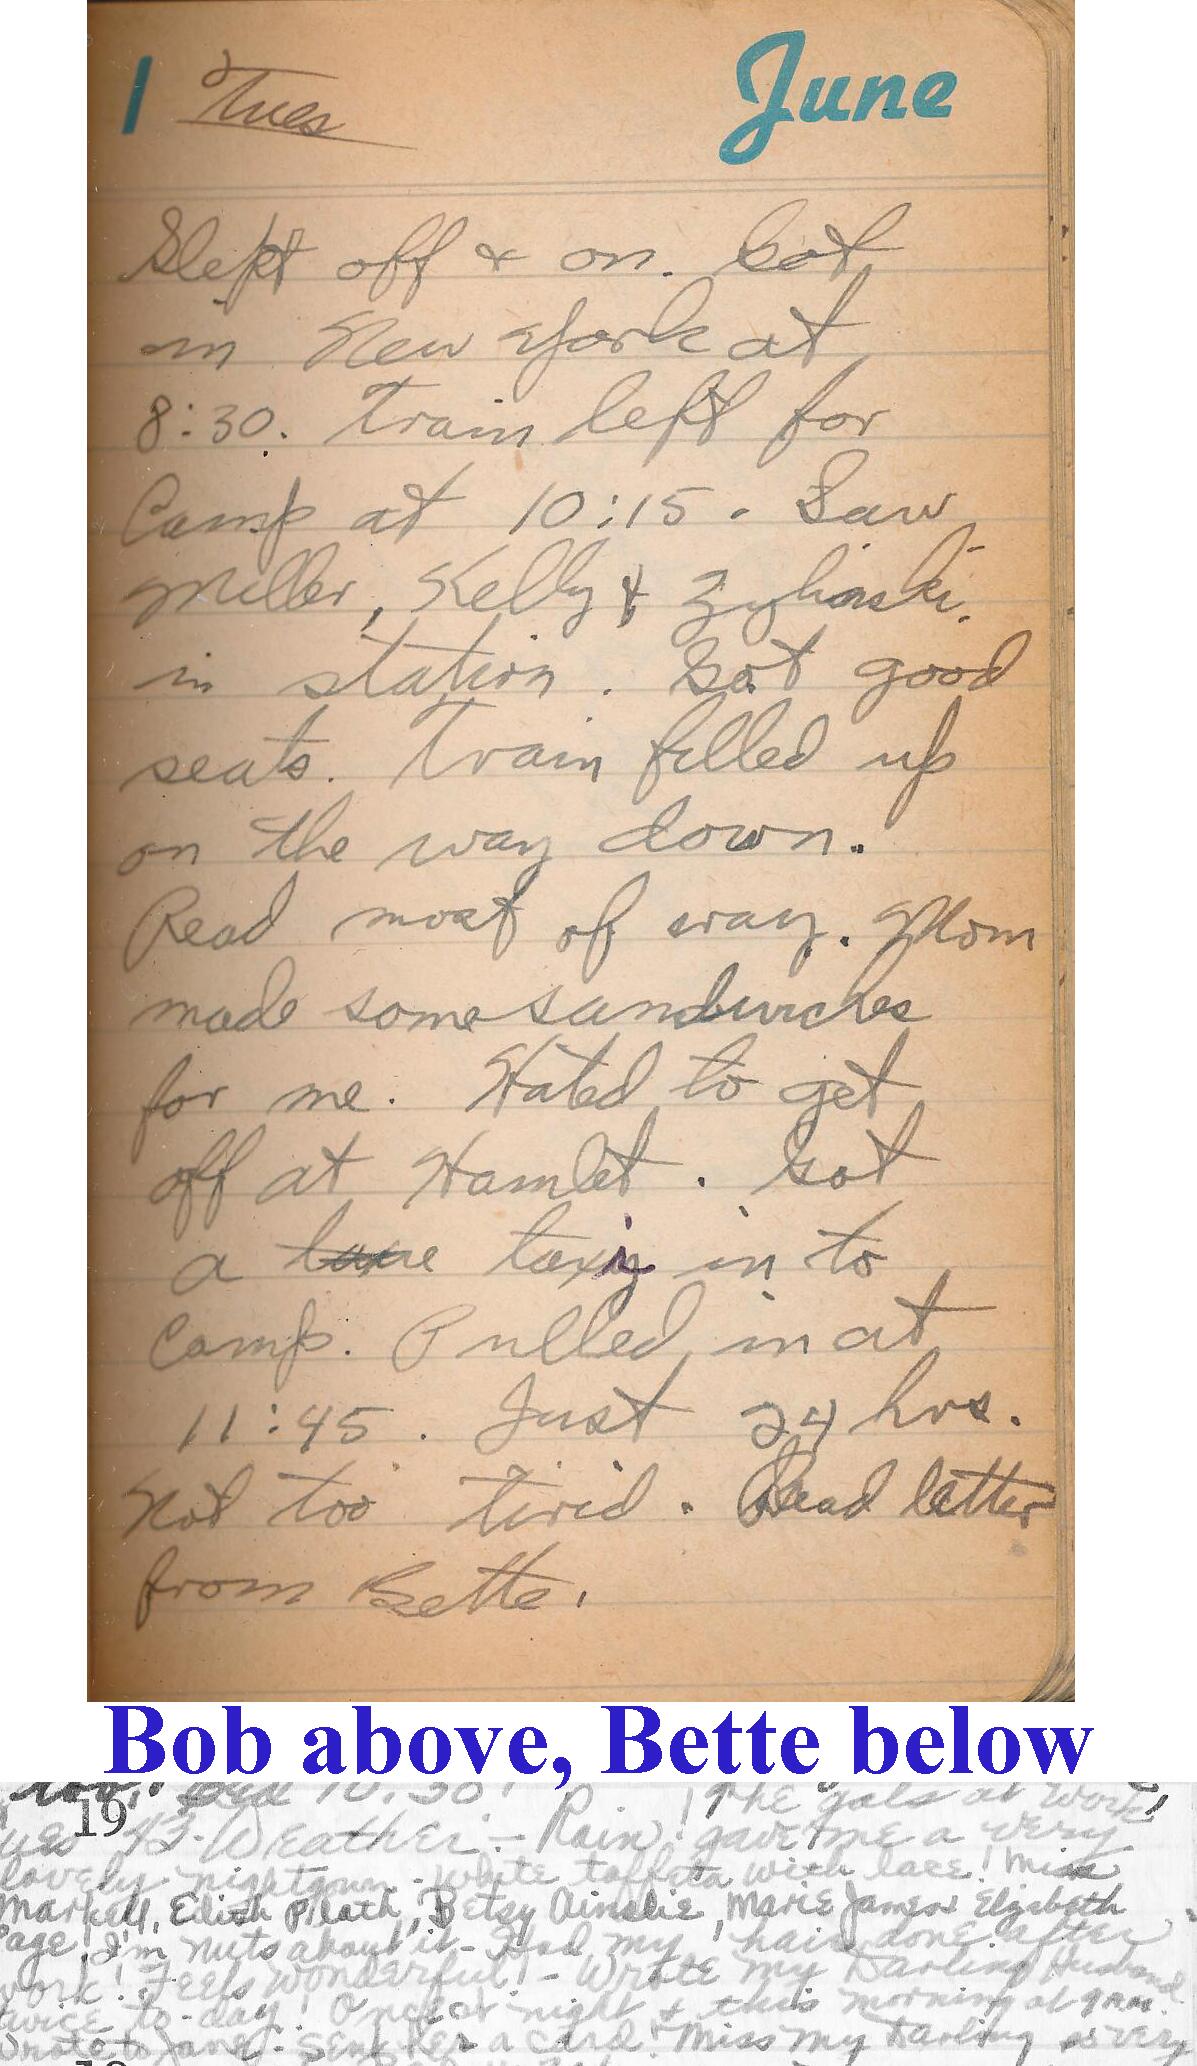 1 Tues June
Slept off & on. Got
in New York at
8:30. Train left for
Camp at 10:15. Saw
Miller, Kelly & Zylinski.
in station. Got good
seats. Train filled up
on the way down.
Read most of way. Mom
made some sandwiches
for me. Hated to get
off at Hamlet. Got
a taxi in to
Camp. Pulled in at
11:45. Just 24 hrs.
Not too tired. Read letter
from Bette.
Bob above, Bette below
Bed 10:30! The gals at work
19
43 - Weather - Rain! gave me a very
lovely nightgown - White taffeta with lace! Miss
Markell, Edith Plath, Betsy Ainslie, Marie James & Elizabeth
Page! I'm nuts about it - Had my hair done after
work! Feels wonderful! - Wrote my Darling Husband
twice to-day! Once at night & this morning at 9
Wrote to Jane - Sent her a card! Miss my Darling very